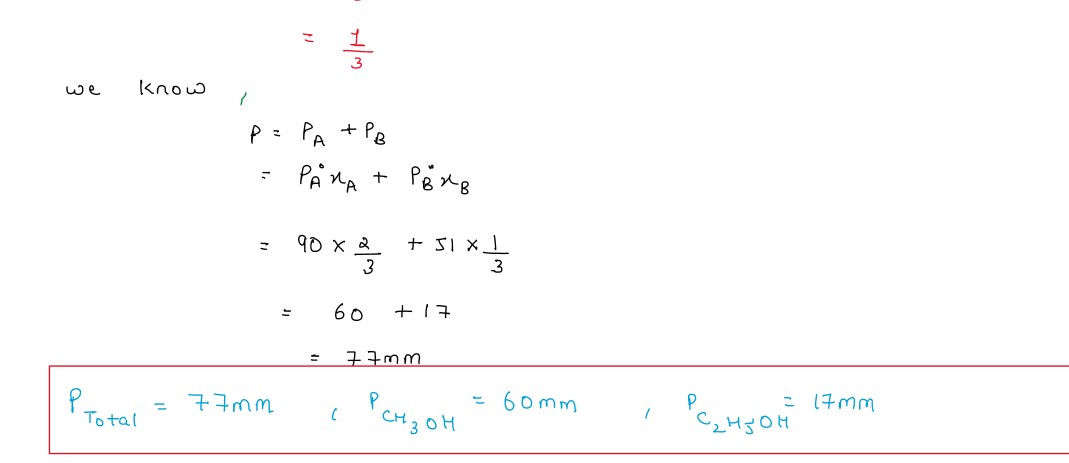 = 1/3
we know,
P = P_A + P_B
= P°_A x_A + P°_B x_B
= 90 × 2/3 + 51 × 1/3
= 60 + 17
= 77mm
P_Total = 77mm , P_CH3OH = 60mm , P_C2H5OH = 17mm